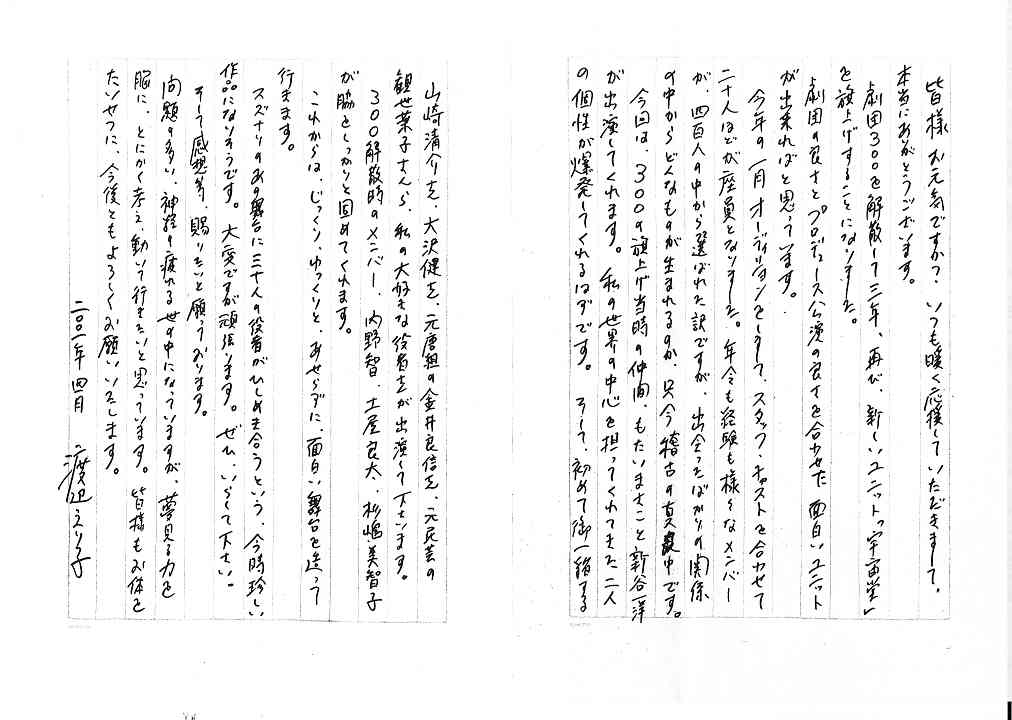 皆様 お元気ですか？いつも暖く応援していただきまして、
本当にありがとうございます。
劇団３００を解散して三年、再び、新しいユニット「宇宙堂」
を旗上げすることになりました。
劇団の良さとプロデュース公演の良さを合わせた面白いユニット
が出来ればと思っています。
今年の一月オーディションをしまして、スタッフ・キャストを合わせて
二十人ほどが座員となりました。年令も経験も様々なメンバー
が、四百人の中から選ばれた訳ですが、出会ったばかりの関係
の中からどんなものが生まれるのか、只今稽古の真最中です。
今回は、３００の旗上げ当時の仲間、もたいまさこと新谷一洋
が出演してくれます。私の世界の中心を担ってくれてきた二人
の個性が爆発してくれるはずです。そして、初めて御一緒する
山崎清介さん、大沢健さん、元唐組の金井良信さん、元民芸の
観世葉子さんら、私の大好きな役者さんが出演して下さいます。
３００解散時のメンバー、内野智、土屋良太、杉嶋美智子
が脇をしっかりと固めてくれます。
これからは、じっくり、ゆっくりと、あせらずに、面白い舞台を造って
行きます。
スズナリのあの舞台に三十人の役者がひしめき合うという、今時珍しい
作品になりそうです。大変ですが頑張ります。ぜひ、いらして下さい。
そして感想等、賜りたいと願っております。
問題の多い、神経の疲れる世の中になっていますが、夢見る力を
脳に、とにかく考え、動いて行きたいと思っています。皆様もお体を
たいせつに、今後ともよろしくお願いいたします。
二〇〇一年 四月 渡辺えり子